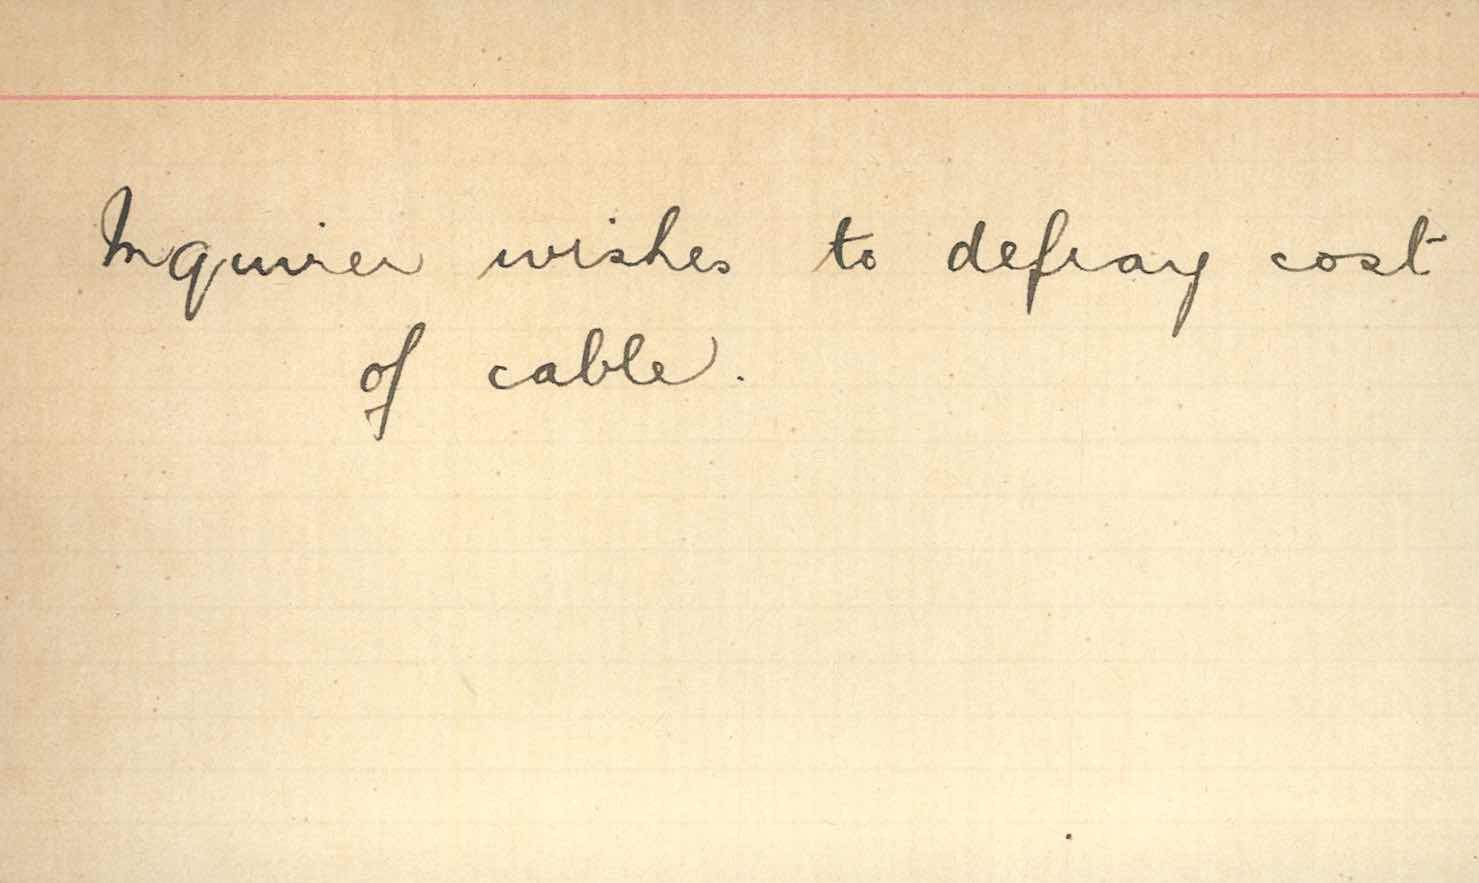 Inquirer wishes to defray cost
of cable.